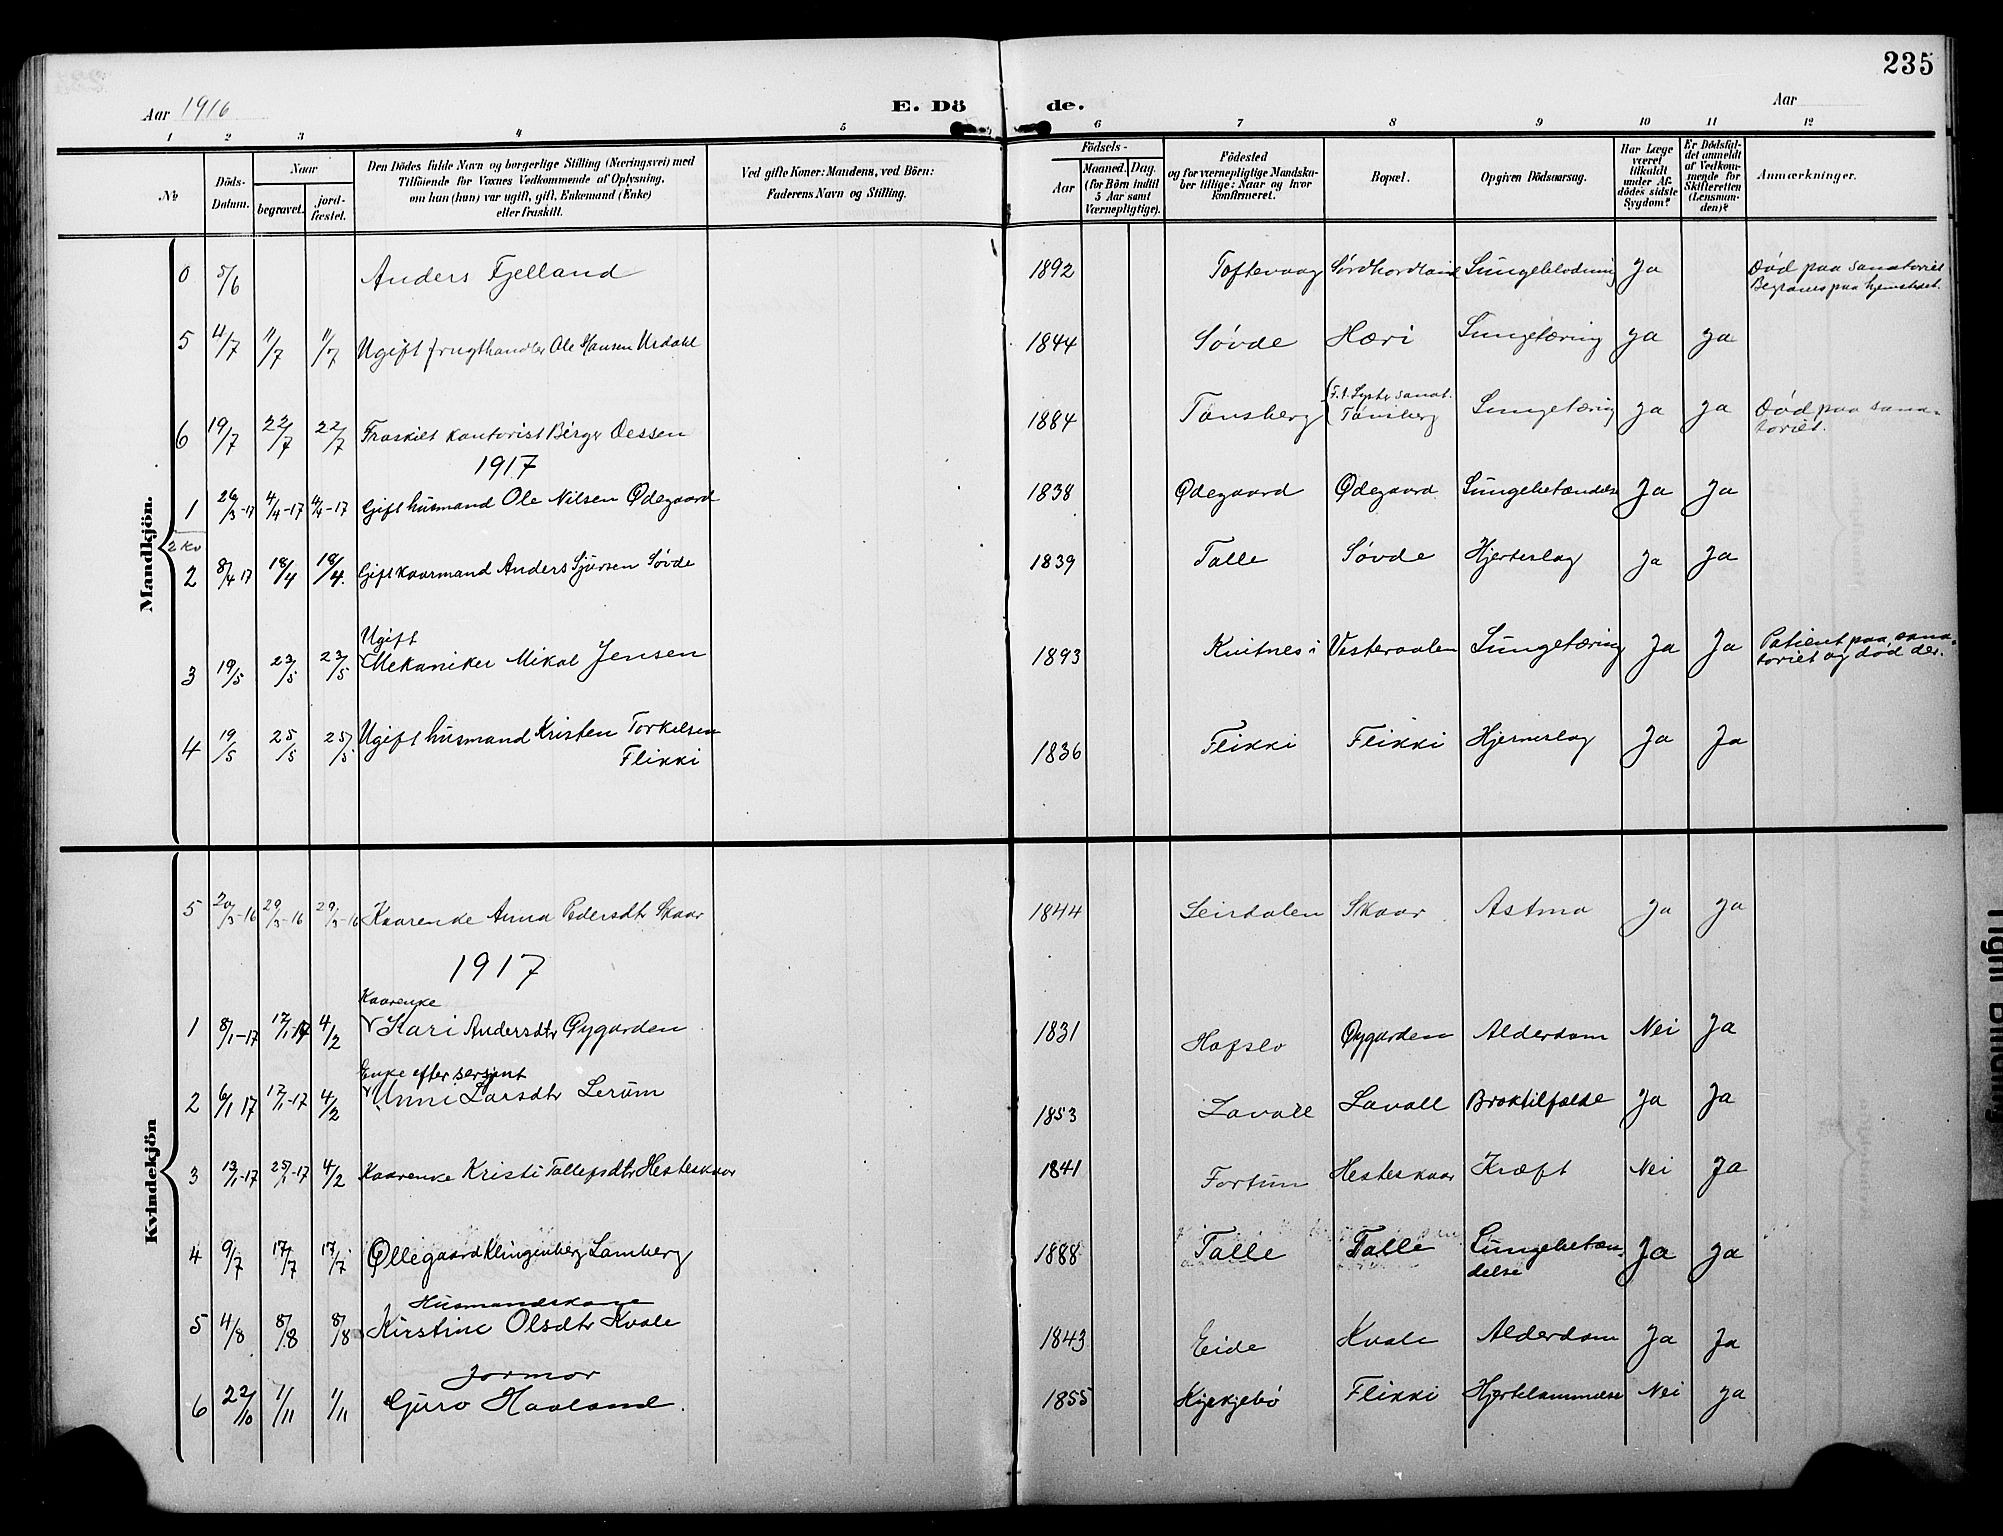 235
Aar 1916
E. Dö de.
Aar
1 2 3 4 5 6 7 8 9 10 11 12
No
Döds-Datum.
Naar
begravet.
jord-fæstet.
Den Dödes fulde Navn og borgerlige Stilling (Næringsvei) med
Tilföiende for Voxnes Vedkommende af Oplysning,
om han (hun) var ugift, gift, Enkemand (Enke)
eller fraskilt.
Ved gifte Koner: Mandens, ved Börn:
Faderens Navn og Stilling.
Födsels-
Aar
Maaned. Dag.
(for Börn indtil
5 Aar samt
Værnepligtige).
Födested
og for værnepligtige Mandska-
ber tillige: Naar og hvor
konfirmeret.
Bopæl.
Opgiven Dödsaarsag.
Har Læge
været
tilkaldt
under Af-
dödes sidste
Sygdom?
Er Dödsfal-
det anmeldt
af Vedkom-
mende for
Skifteretten
(Lensman-
den)?
Anmærkninger.
Mandkjön.
0 5/6 Anders Fjelland 1892 Toftevaag Søndhordland Lungeblødning Ja Død paa sanatoriet
Begraves paa hjemstedet.
5 4/7 11/7 11/7 Ugift frugthandler Ole Hansen Urdahl 1844 Søvde Hæri Lungetæring Ja Ja
6 19/7 22/7 22/7 Fraskilt kontorist Birger Oessen 1884 Tønsberg (F.t. Lyster sanat. Tønsberg Lungetæring Ja Ja Død paa sana-
toriet.
1917
1 26/3-17 4/4-17 4/4-17 Gift husmand Ole Nilsen Ødegaard 1838 Ødegaard Ødegaard Lungebetændelse Ja Ja
2 Kv
2 8/4 17 18/4 18/4. Gift kaarmand Anders Sjursen Søvde 1839 Talle Søvde Hjerteslag Ja Ja
Ugift
3 19/5 23/5 23/5 Mekaniker Mikal Jensen 1893 Kvitnes i Vesteraalen Lungetæring Ja Ja Patient paa sana-
toriet og død der.
4 19/5 25/5 25/5 Ugift husmand Kristen Torkelsen
Flikki 1836 Flikki Flikki Hjerneslag Ja Ja
Kvindekjön
5 20/3-16 29/3-16 29/3-16 Kaarenke Anna Pedersdtr Skaar 1844 Leirdalen Skaar Astma Ja Ja
1917
Kaarenke
1 8/1-17 17/1-17 4/2 Kari Andersdtr Øygarden 1831 Hafslo Øygarden Alderdom Nei Ja
Enke efter sersjant
2 6/1 17 17/1-17 4/2 Unni Larsdtr Lerum 1853 Lavoll Lavoll Broktilfælde Ja Ja
3 13/1-17 25/1-17 4/2 Kaarenke Kristi Tollefsdtr Hesteskaar 1841 Fortun Hesteskaar Kræft Nei Ja
4 9/7 17/7 17/7 Øllegaard Klingenberg Lamberg 1888 Talle Talle Lungebetæn-
delse Ja Ja
Husmandskone
5 4/8 8/8 8/8 Kirstine Olsdtr Kvale 1843 Eide Kvale Alderdom Ja Ja
Jormor
6 22/10 1/11 1/11 Guro Haaland. 1855 Kyrkjebø Flikki Hjertelammelse Nei Ja
Tight Binding